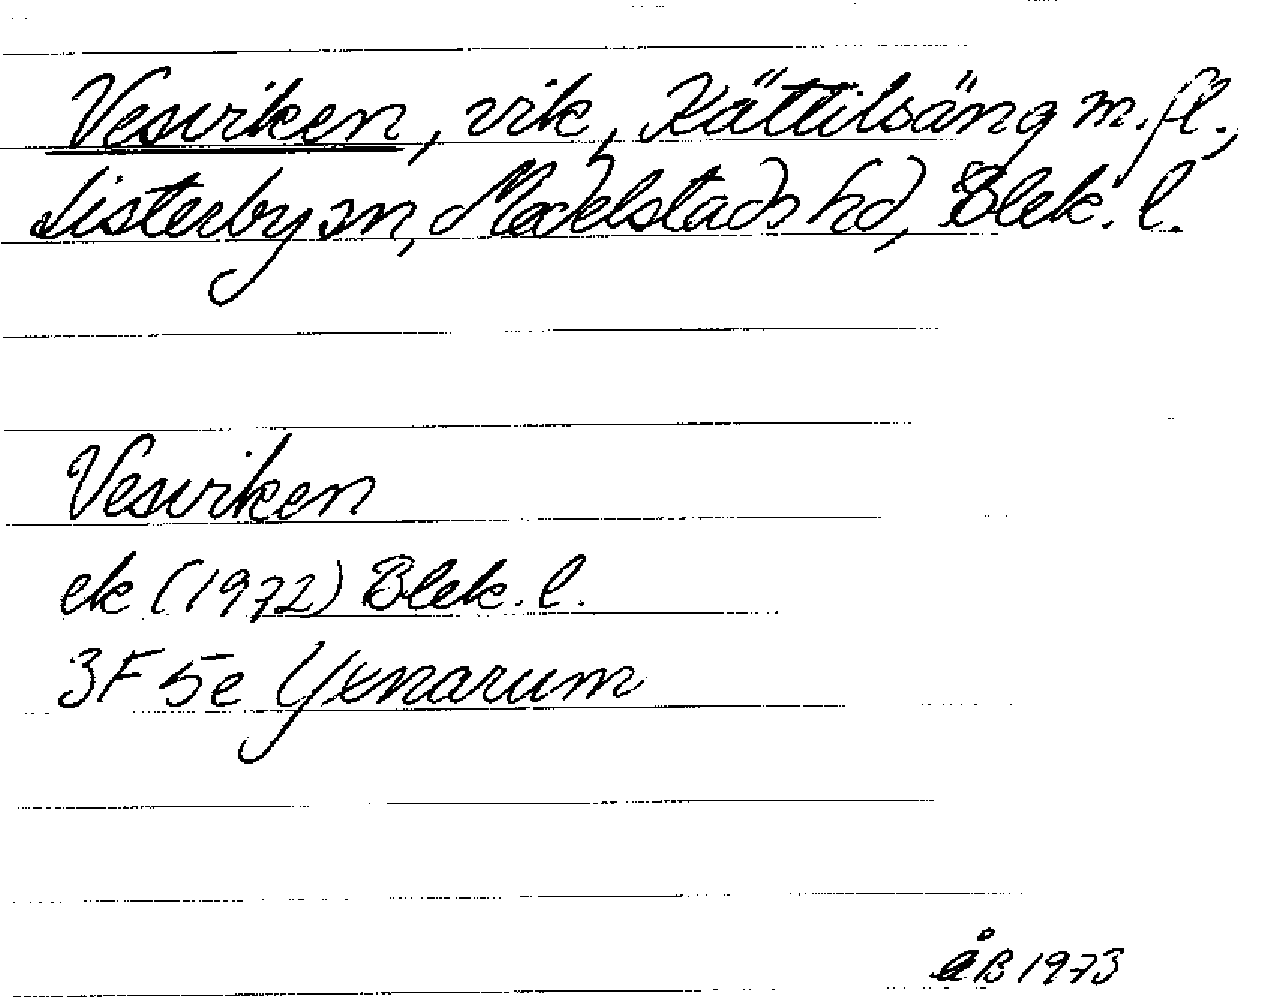 Vesviken, vik, Kättilsäng m.fl.,
Listerby sn, Medelstads hd, Blek. l.
Vesviken
ek (1972) Blek. l.
3F 5e Yxnarum
åB 1973